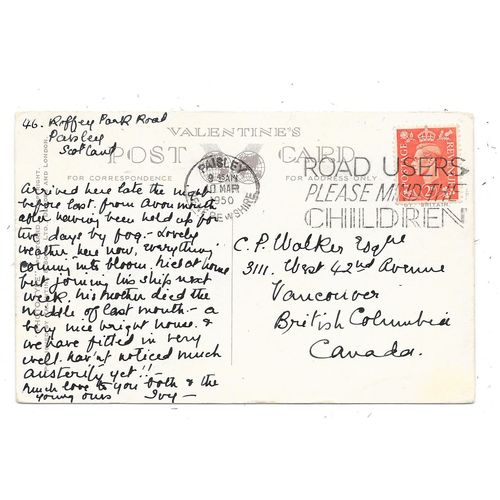 46. Riffey Park Road
Paisley
Scotland
VALENTINE'S
POST CARD
FOR CORRESPONDENCE
FOR ADDRESS ONLY
PAISLEY
9 - AM
MAR
1950
RENFREWSHIRE
ROAD USERS
PLEASE MIND THE
CHILDREN
Arrived here late the night
before last. from Avonmouth
after having been held up for
two days by fog – Lovely
weather here now, everything
coming into bloom. at home
but joining his ship next
week. his mother died the
middle of last month – a
very nice bright house. &
we have fitted in very
well. hav'nt noticed much
austerity yet!! –
much love to you both & the
young ones Ivy –
C.P. Walker Esqre
3111. West 42nd Avenue
Vancouver
British Columbia
Canada.